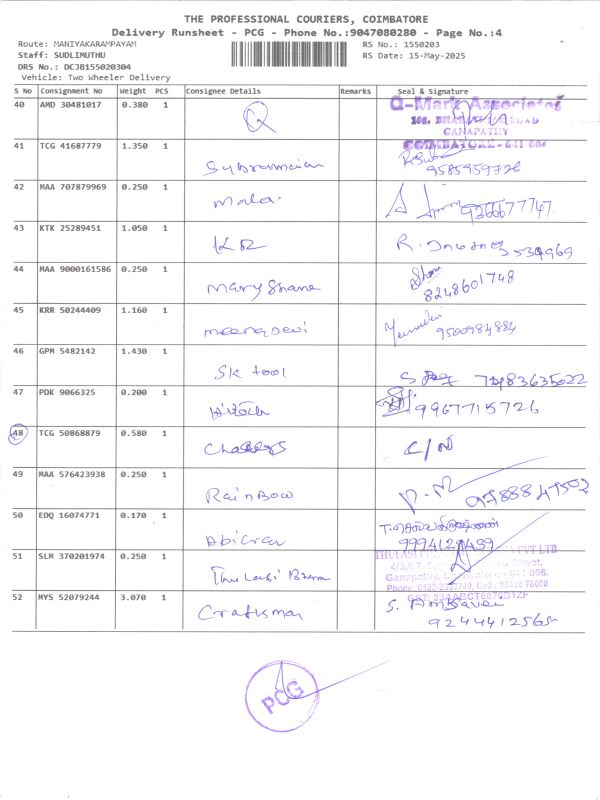 THE PROFESSIONAL COURIERS, COIMBATORE
Delivery Runsheet - PCG - Phone No.:9047080280 - Page No.:4
Route: MANIYAKARAMPAYAM
RS No.: 1550203
Staff: SUDLIMUTHU
RS Date: 15-May-2025
DRS No.: DCJB155020304
Vehicle: Two Wheeler Delivery
S No Consignment No Weight PCS Consignee Details Remarks Seal & Signature
40 AMD 30481017 0.380 1 Q Q-Mark Associates
GANAPATHY
COIMBATORE - 641 006
41 TCG 41687779 1.350 1
9585959726
42 MAA 707879969 0.250 1 Mala
9366677747
43 KTK 25289451 1.050 1 KR
44 MAA 9000161586 0.250 1 Mary Shane
8248601748
45 KRR 50244409 1.160 1 meenadevi
9500984884
46 GPM 5482142 1.430 1 Sk tool
47 PDK 9066325 0.200 1
9967715726
48 TCG 50868879 0.580 1 C/N
49 MAA 576423938 0.250 1 RainBow
50 EDQ 16074771 0.170 1
51 SLM 370201974 0.250 1 Thulasi
PVT LTD
Ganapathy, Coimbatore - 641 006.
52 MYS 52079244 3.070 1 Craftsman
9244412565
PCG